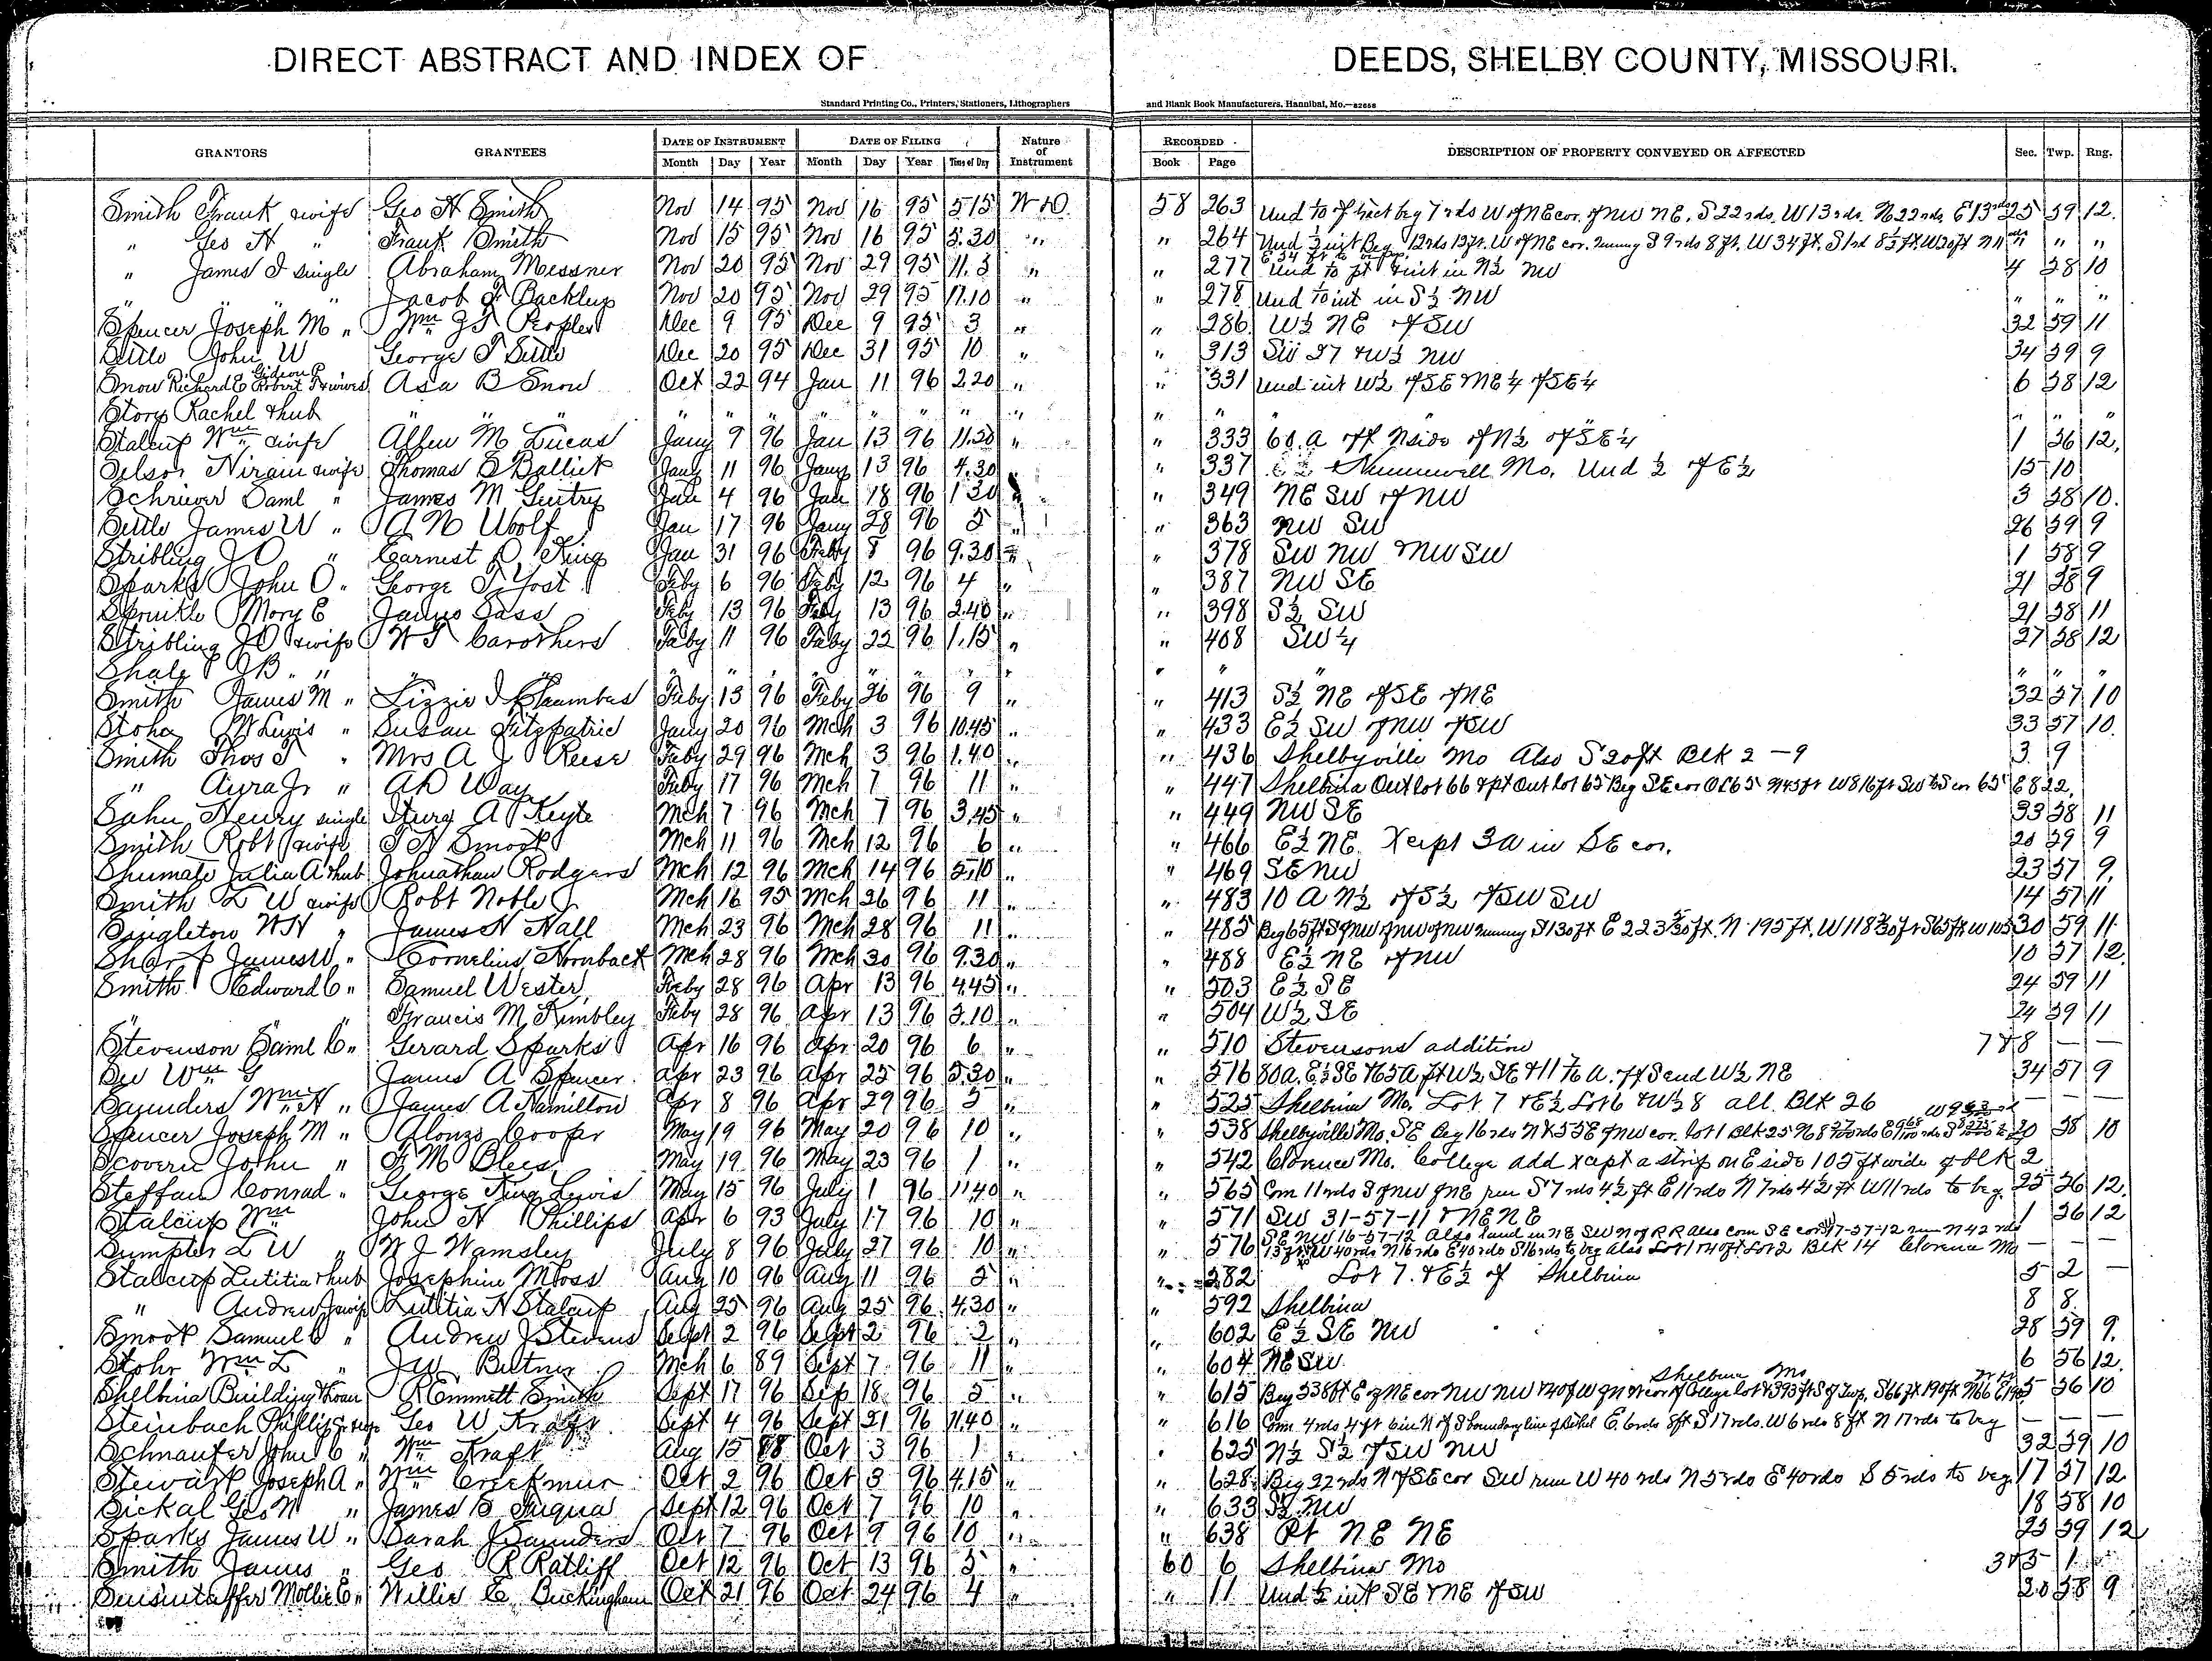 DIRECT ABSTRACT AND INDEX OF DEEDS, SHELBY COUNTY, MISSOURI.
Standard Printing Co., Printers, Stationers, Lithographers and Blank Book Manufacturers, Hannibal, Mo.—82658
GRANTORS GRANTEES DATE OF INSTRUMENT DATE OF FILING Nature of Instrument RECORDED DESCRIPTION OF PROPERTY CONVEYED OR AFFECTED Sec. Twp. Rng.
Month Day Year Month Day Year Time of Day Book Page
Smith Frank & wife Geo H Smith Nov 14 95 Nov 16 95 5.15 W D 58 263 Und of tract beg 7 rds W of NE cor. of NW NE, S 22 rds, W 13 rds, N 22 rds, E 13 rds 25 59 12.
" Geo H " Frank Smith Nov 15 95 Nov 16 95 5.30 " " 264 Und int Beg 12 rds 13 ft. W of NE cor. running S 9 rds 8 ft. W 34 ft. " " "
" James I single Abraham Messner Nov 20 95 Nov 29 95 11.5 " " 277 Und int in N½ NW 4 58 10
" " " " Jacob F Backlup Nov 20 95 Nov 29 95 11.10 " " 278 Und int in S½ NW " " "
Spencer Joseph M " Wm J Peoples Dec 9 95 Dec 9 95 3 " " 286 W½ NE of SW 32 59 11
Settle John W George T Settle Dec 20 95 Dec 31 95 10 " " 313 SW & W½ NW 34 59 9
Snow Richard E Gideon P Robert & wives Asa B Snow Oct 22 94 Jan 11 96 2.20 " " 331 Und int W½ of SE & NE¼ of SE¼ 6 58 12
Story Rachel & hub " " " " " " " " " " " " " " " " " "
Stalcup Wm & wife Allen M Lucas Jany 9 96 Jan 13 96 11.20 " " 333 60 a off N side of N½ of SE¼ 1 56 12.
Selsor Hiram & wife Thomas B Balliet Jany 11 96 Jany 13 96 4.30 " " 337 Hunnewell Mo. Und ½ of E½ 15 10
Schriever Saml " James M Gentry Jan 4 96 Jan 18 96 1 30 " " 349 NE SW of NW 3 58 10.
Settle James W " A N Woolf Jan 17 96 Jany 28 96 5 " " 363 NW SW 26 59 9
Stribling J O " Earnest D King Jan 31 96 Feby 8 96 9.30 " " 378 SW NW & NW SW 1 58 9
Sparks John O. " George T. Yost Feby 6 96 Feby 12 96 4 " " 387 NW SE 21 58 9
Sprinkle Mary E James Gass Feby 13 96 Feby 13 96 2.40 " " 398 S½ SW 21 58 11
Stribling J O & wife W T Carothers Feby 11 96 Feby 22 96 1.15 " " 408 SW¼ 27 58 12
Shale J B. " " " " " " " " " " " " " "
Smith James M " Lizzie I Chambers Feby 13 96 Feby 26 96 9 " " 413 S½ NE of SE of NE 32 57 10
Stoha W Lewis " Susan Fitzpatric Jany 20 96 Mch 3 96 10.45 " " 433 E½ SW of NW of SW 33 57 10.
Smith Thos T " Mrs A J Reese Feby 29 96 Mch 3 96 1.40 " " 436 Shelbyville Mo Also S 20 ft Blk 2 — 9 3 9
" Ayra Jr " A D Way Feby 17 96 Mch 7 96 11 " " 447 Shelbina Out lot 66 & pt Out lot 65 Beg SE cor OL 65 N 45 ft W 816 ft
Sahn Henry single Henry A Keyte Mch 7 96 Mch 7 96 3.45 " " 449 NW SE 33 58 11
Smith Robt & wife T H Smoot Mch 11 96 Mch 12 96 6 " " 466 E½ NE. Xcept 3a in SE cor. 20 59 9
Shumate Julia A & hub Johnathan Rodgers Mch 12 96 Mch 14 96 5.10 " " 469 SE NW 23 57 9.
Smith L W & wife Robt Noble Jr Mch 16 95 Mch 26 96 11 " " 483 10 A N½ of S½ of SW SW 14 57 11
Singleton W H " James H Hall Mch 23 96 Mch 28 96 11 " " 485 Beg 65 ft S of NW of NW of NW running S 130 ft E 223 ft. N 195 ft, W 118 ft S 65 ft W 105 30 59 11.
Sharp James W. " Cornelius Hornback Mch 28 96 Mch 30 96 9.30 " " 488 E½ NE of NW 10 57 12.
Smith Edward C " Samuel Wester Feby 28 96 Apr 13 96 4.45 " " 503 E½ SE 24 59 11
" " Francis M Kimbley Feby 28 96 Apr 13 96 5.10 " " 504 W½ SE 24 59 11
Stevenson Saml C " Gerard Sparks Apr 16 96 Apr 20 96 6 " " 510 Stevensons addition 7 & 8 — —
See Wm G James A Spencer. Apr 23 96 Apr 25 96 5.30 " " 516 80a. E½ SE & 65a pt W½ SE & 11 a. off S end W½ NE 34 57 9
Saunders Wm H " James A Hamilton Apr 8 96 Apr 29 96 5 " " 525 Shelbina Mo. Lot 7 & E½ Lot 6 & W½ 8 all Blk 26 — — —
Spencer Joseph M " Alonzo Cooper May 19 96 May 20 96 10 " " 538 Shelbyville Mo. SE Beg 16 rds N & 55 E of NW cor. lot 1 Blk 25 20 58 10
Scovern John " F M Blees. May 19 96 May 23 96 1 " " 542 Clarence Mo. College add xcept a strip on E side 105 ft wide of blk 2
Steffan Conrad " George King Lewis May 15 96 July 1 96 11.40 " " 565 Com 11 rds S of NW of NE run S 7 rds 4½ ft E 11 rds N 7 rds 4½ ft W 11 rds to beg 25 56 12.
Stalcup Wm John H Phillips Apr 6 93 July 17 96 10 " " 571 SW 31-57-11 & NE NE 1 56 12
Sumpter L W " W J Wamsley July 8 96 July 27 96 10 " " 576 SE NW 16-57-12 Also land in NE SW N of R R Also com SE cor 17-57-12 run N 42 rds
W 40 rds N 16 rds E 40 rds S 16 rds to beg Also Lot 1 & 40 ft Lot 2 Blk 14 Clarence Mo — — —
Stalcup Lutitia & hub Josephine M Goss Aug 10 96 Aug 11 96 5 " " 582 Lot 7. & E½ of Shelbina 5 2 —
" Andrew J & wife Lutitia H Stalcup Aug 25 96 Aug 25 96 4.30 " " 592 Shelbina 8 8.
Smoot Samuel C " Andrew J Stevens Sept 2 96 Sept 2 96 2 " " 602 E½ SE NW 28 59 9.
Stohr Wm L " J W. Bittner Mch 6 89 Sept 7 96 11 " " 604 NE SW. 6 56 12.
Shelbina Building & Loan R Emmett Smith Sept 17 96 Sep 18 96 5 " " 615 Shelbina Mo 5 56 10
Steinbach Phillip Geo W Kraft Sept 4 96 Sept 21 96 11.40 " " 616 Com 4 rds 4 ft 6 in N of S boundary line of Bethel E. 6 rds 8 ft S 17 rds. W 6 rds 8 ft N 17 rds to beg — — —
Schnaufer John C " Wm Kraft Aug 15 88 Oct 3 96 1 " " 625 N½ S½ of SW NW 32 59 10
Stewart Joseph A " Wm Creekmur Oct 2 96 Oct 3 96 4.15 " " 628 Beg 22 rds N of SE cor SW run W 40 rds N 5 rds E 40 rds S 5 rds to beg 17 57 12
Sickal Geo W " James B Fuqua Sept 12 96 Oct 7 96 10 " " 633 S½ NW 18 58 10
Sparks James W " Sarah J Saunders Oct 7 96 Oct 9 96 10 " " 638 Pt NE NE 25 59 12
Smith James " Geo R Ratliff Oct 12 96 Oct 13 96 5 " 60 6 Shelbina Mo 3 & 5 1
Sensintaffer Mollie E " Willie E. Buckingham Oct 21 96 Oct 24 96 4 " " 11 Und ½ int SE & NE of SW 20 58 9